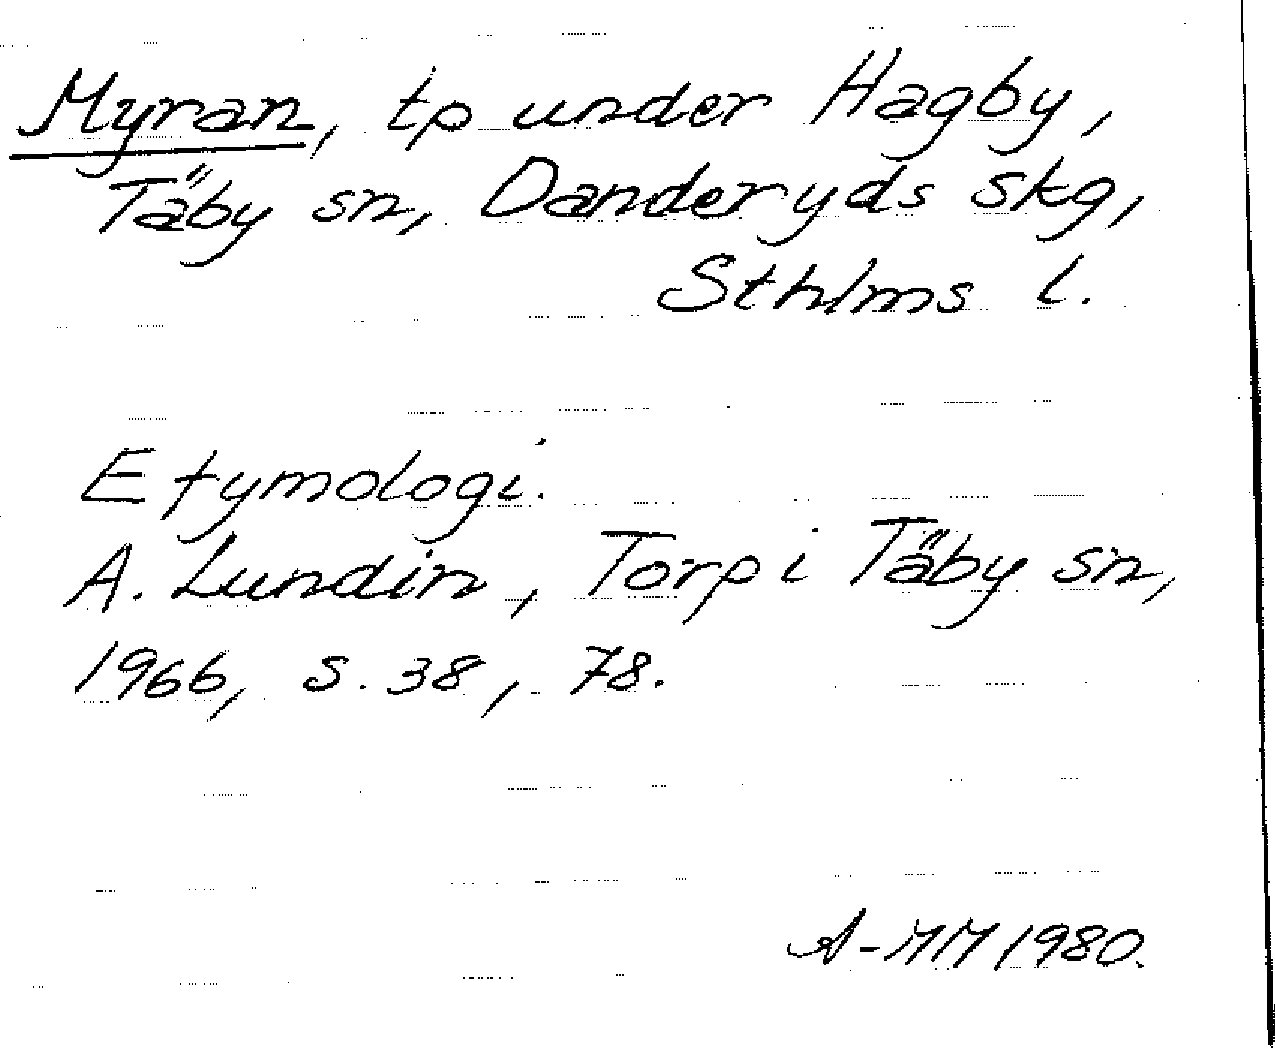 Myran, tp under Hagby,
Täby sn, Danderyds skg,
Sthlms l.
Etymologi.
A. Lundin, Torp i Täby sn,
1966, s. 38, 78.
A-MM 1980.